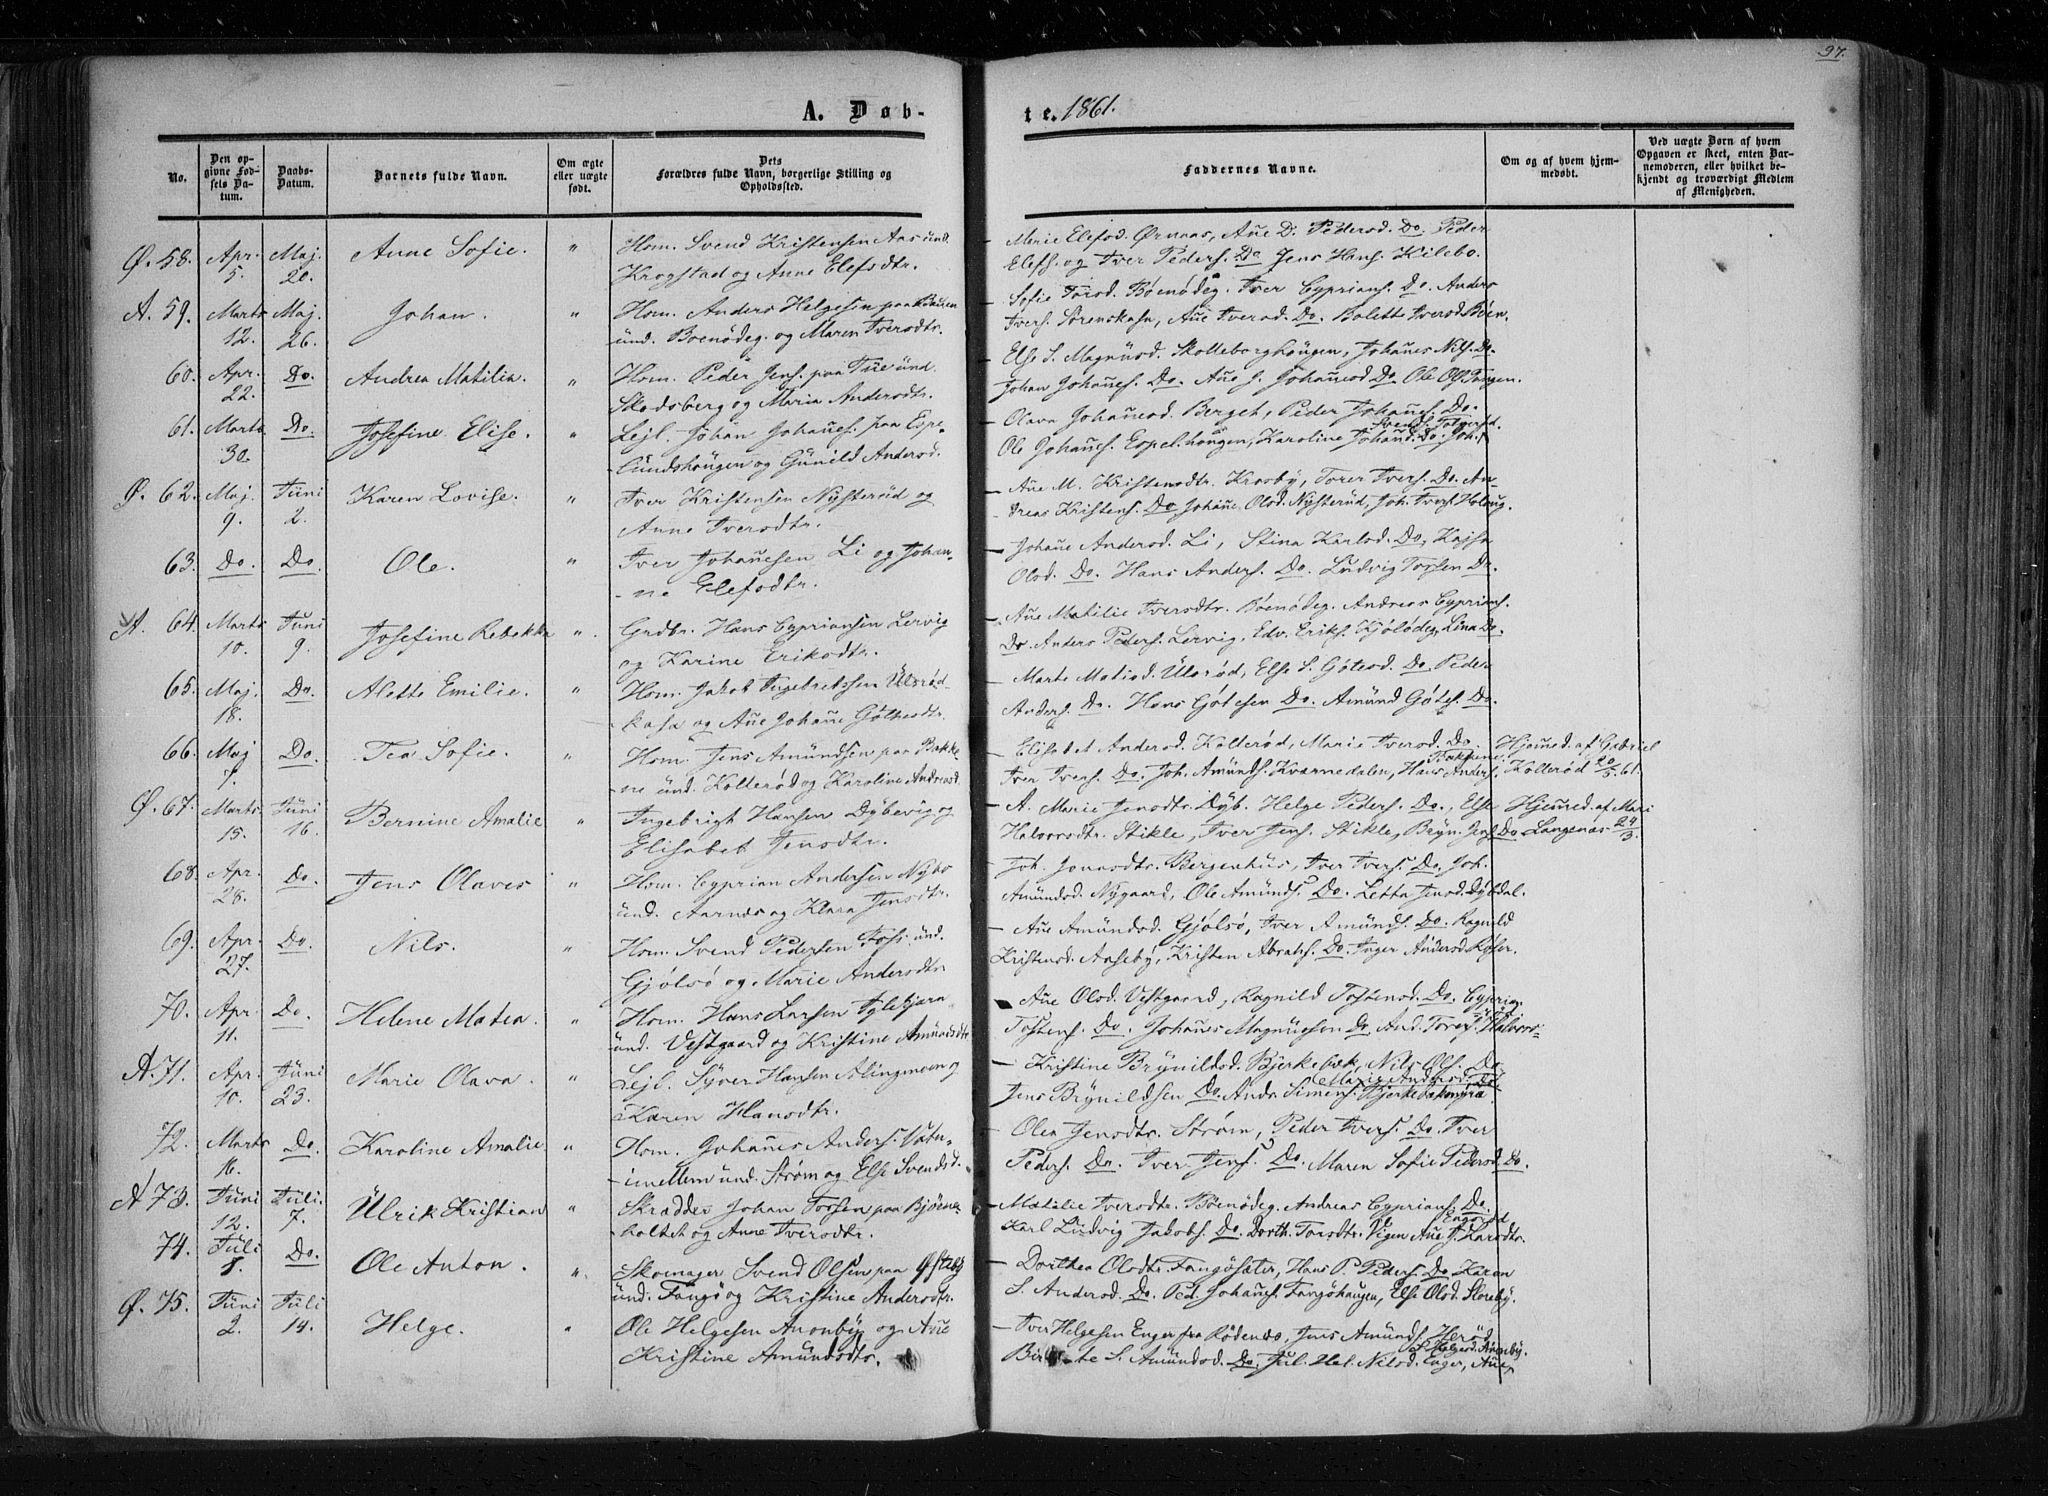 97.
A. Døb-
te. 1861.
No.
Den op-
givne Fød-
sels Da-
tum.
Daabs-
Datum.
Barnets fulde Navn.
Om ægte
eller uægte
født.
Dets
Forældres fulde Navn, borgerlige Stilling og
Opholdssted.
Faddernes Navne.
Om og af hvem hjem-
medøbt.
Ved uægte Børn af hvem
Opgaven er skeet, enten Bar-
nemoderen, eller hvilket be-
kjendt og troværdigt Medlem
af Menigheden.
Ø. 58. Apr. 5. Maj. 20. Anne Sofie. " Hom. Svend Kristensen Aas und.
Krogstad og Anne Elefsdtr.
Marie Elefsd. Ørnæs, Añe D. Pedersd. Do. Peder
Elefs. og Iver Peders. Do Jens Hans. Kilebo.
A. 59. Marts 12. Maj. 26. Johan. " Hom. Anders Helgesen paa
und. Boenødeg. og Maren Iversdtr.
Sofie Torsd. Bøenødeg. Iver Cyprians. Do. Anders
Ivers. Sørenskaasa, Añe Iversd. Do. Bolette Iversd. Bøen.
60. Apr. 22. Do. Andrea Matilia. " Hom. Peder Jens. paa Tüe ünd.
Skodsberg og Maria Andersdtr.
Else S. Magnusd. Skolleborghougen, Johañes Nils. Do.
Johan Johañes. Do. Añe J. Johañesd Do Ole Ols. Tangen.
61. Marts 30. Do. Josefine Elise. " Lejl. Johan Johañes. paa Espe-
lundshougen og Günild Andersd.
Olava Johañesd. Berget, Peder Johañes. Do.
Ole Johañes. Espel.hougen, Karoline Johañsd. Do. Joh.
Ø. 62. Maj. 9. Juni 2. Karen Lovise. " Iver Kristensen Nysterüd og
Anne Iversdtr.
Añe M. Kristensdtr. Krosby, Torer Ivers. Do. An-
dreas Kristens. Do Johañe Olsd. Nysterüd, Joh. Ivers. Holoug.
63. Do. Do. Ole. " Iver Johañesen Li og Johan-
ne Elefsdtr.
Johañe Andersd. Li, Stina Karlsd. Do. Kajsa
Olsd. Do. Hans Anders. Do. Ludvig Torsen Do.
A. 64. Marts 10. Juni 9. Josefine Rebekka ". Grdbr. Hans Cypriansen Lervig
og Karine Eriksdtr.
Añe Matilie Iversdtr. Bøenødeg. Andreas Cyprians.
Do. Anders Peders. Lervig, Edv. Eriks. Kjølødeg. Lina Do.
65. Maj. 18. Do. Alette Emilie. " Hom. Jakob Ingebretssen Ülsrød-
kasa og Añe Johañe Göthesdtr.
Marte Matisd. Ülsrød, Else S. Götesd. Do. Peder
Anders. Do. Hans Götesen Do. Amünd Götes. Do.
66. Maj 7. Do. Tea Sofie. " Hom. Jens Amündsen paa Bakke-
ne und. Kollerød og Karoline Andreasd.
Elisabet Andersd. Kollerød, Marie Iversd. Do.
Bakkene.
Iver Ivers. Do. Joh. Amünds. Kværnedalen, Hans Anders.
Hjemed. af Gabriel
Kollerød 20/5 61.
Ø. 67. Marts. 15. Juni 16. Bernine Amalie " Ingebrigt Hansen Dybevig og
Elisabet Jensdtr.
A. Marie Jensdtr. Dyb. Helge Peders. Do., Else
Halvorsdtr. Stikle, Iver Jens. Stikle, Bryn. Jens. Do
Hjemed. af Mari
Langenæs 24/3.
68. Apr. 28. Do. Jens Olaves " Hom. Cyprian Andersen Nybo
und. Aarnæs og Klara Jensdtr.
Joh. Jonasdtr. Bergenhus, Iver Ivers. Do. Joh.
Amündsd. Nygaard, Ole Amünds. Do. Letta Jensd. Dybdal.
69. Apr. 27. Do. Nils. " Hom. Svend Pedersen Foss und.
Gjølsø og Marie Andersdtr.
Añe Amündsd. Gjølsø, Iver Amünds. Do. Ragnild
Kristensd. Aaseby, Kristen Abrahs. Do Inger Andersd. Røser.
70. Apr. 11. Do. Helene Matea. " Hom. Hans Larsen Iglekjærn
und. Vestgaard og Kristine Amündsdtr.
Añe Olsd. Vestgaard, Ragnild Tostensd. Do. Cyprian
Tostens. Do. Johañes Magnüesen Do And. Tores. Halvors-
A. 71. Apr. 10. Juni 23. Marie Olava. " Lejl. Syver Hansen Slingmoen og
Karen Hansdtr.
Kristine Brynildsd. Bjerkebæk, Nils Ols. Do.
Marie Andersd. Do.
Jens Brynildsen Do. Ands. Simens.
72. Marts 16. Do. Karoline Amalie. " Hom. Johañes Anders. Vaten-
imellem und. Strøm og Else Svendsd.
Olea Jensdtr. Strøm, Peder Ivers. Do. Iver
Peders. Do. Iver Jens. Do. Maren Sofie Pedersd. Do.
A 73. Juni 12. Juli 7. Ülrik Kristian " Skrædder Johan Torsen paa Bjørne-
holtet og Anne Iversdtr.
Matilie Iversdtr. Bøenødeg. Andreas Cyprians. Do.
Karl Lüdvig Jakobs. Do. Dorth. Torsdtr. Vigen Añe J. Larsdtr.
74. Juli 8. Do. Ole Anton. " Skomager Svend Olsen paa Østeby
und. Tangø og Kristine Andersdtr.
Dorthea Olsdtr. Tangøsæter, Hans P. Peders. Do Karen
S. Andersd. Do. Ped. Johañes. Tangøhaugen, Else Olsd. Floreby.
Ø. 75. Juni 2. Juli 14. Helge. " Ole Helgesen Anonby og Añe
Kristine Amündsdtr.
Iver Helgesen Enger fra Rødenæs, Jens Amünds. Herød,
S. Amündsd. Do. Jul. Hel. Nilsd. Enger, Añe